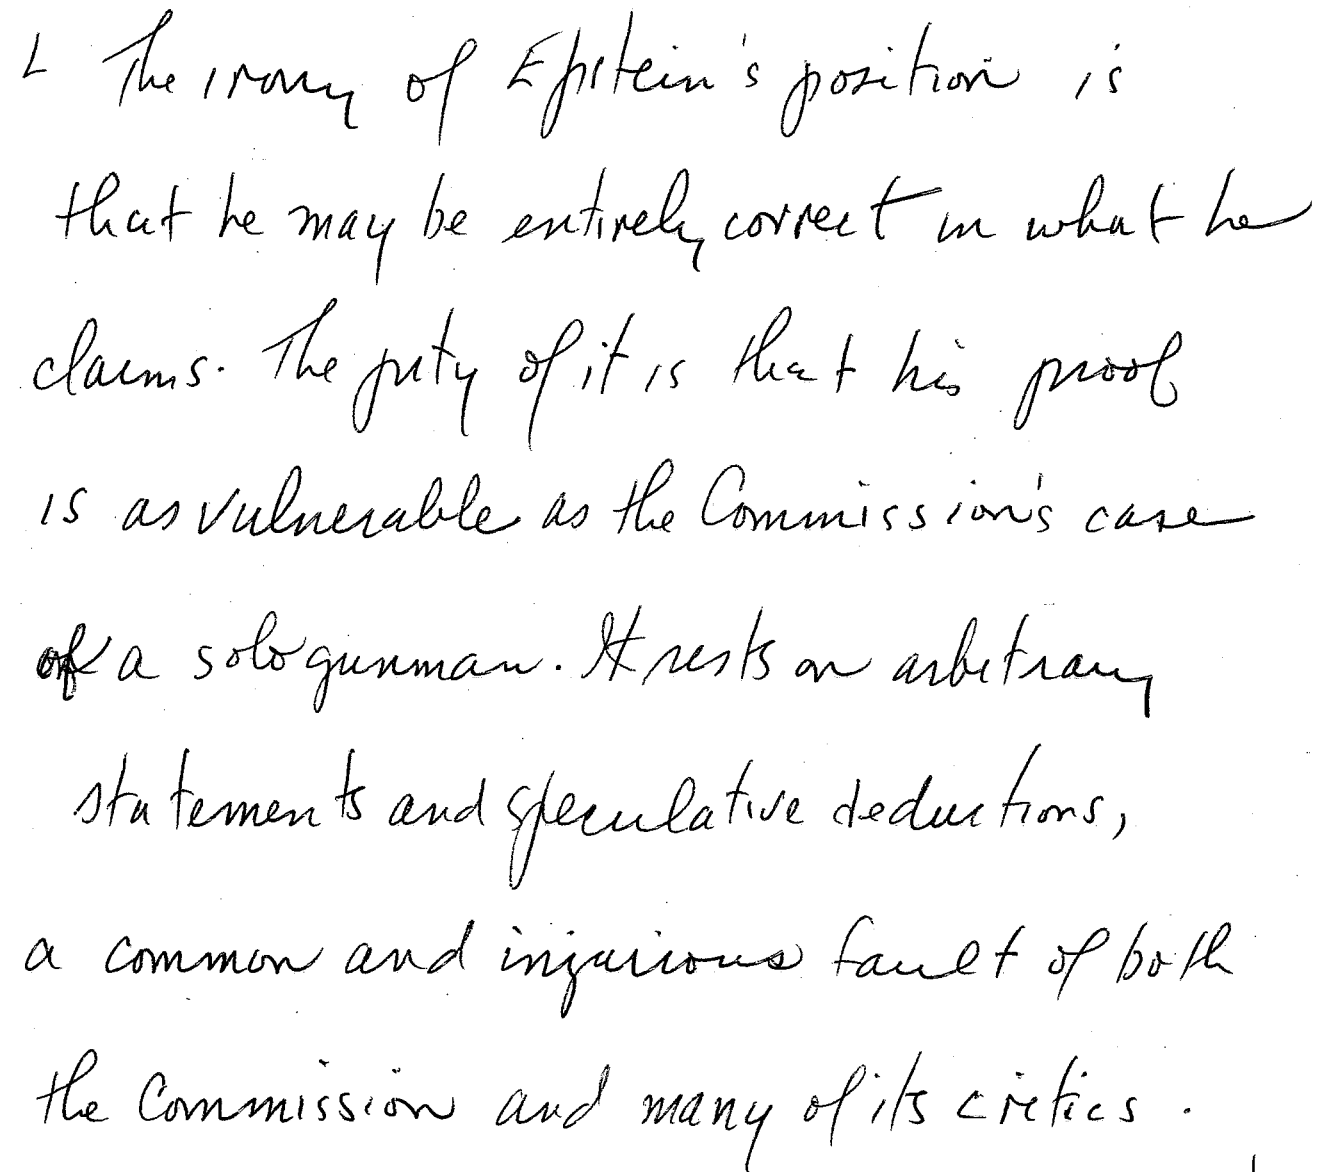 L The irony of Epstein's position is
that he may be entirely correct in what he
claims. The pity of it is that his proof
is as vulnerable as the Commission's case
of a solo gunman. It rests on arbitrary
statements and speculative deductions,
a common and injurious fault of both
the Commission and many of its critics.